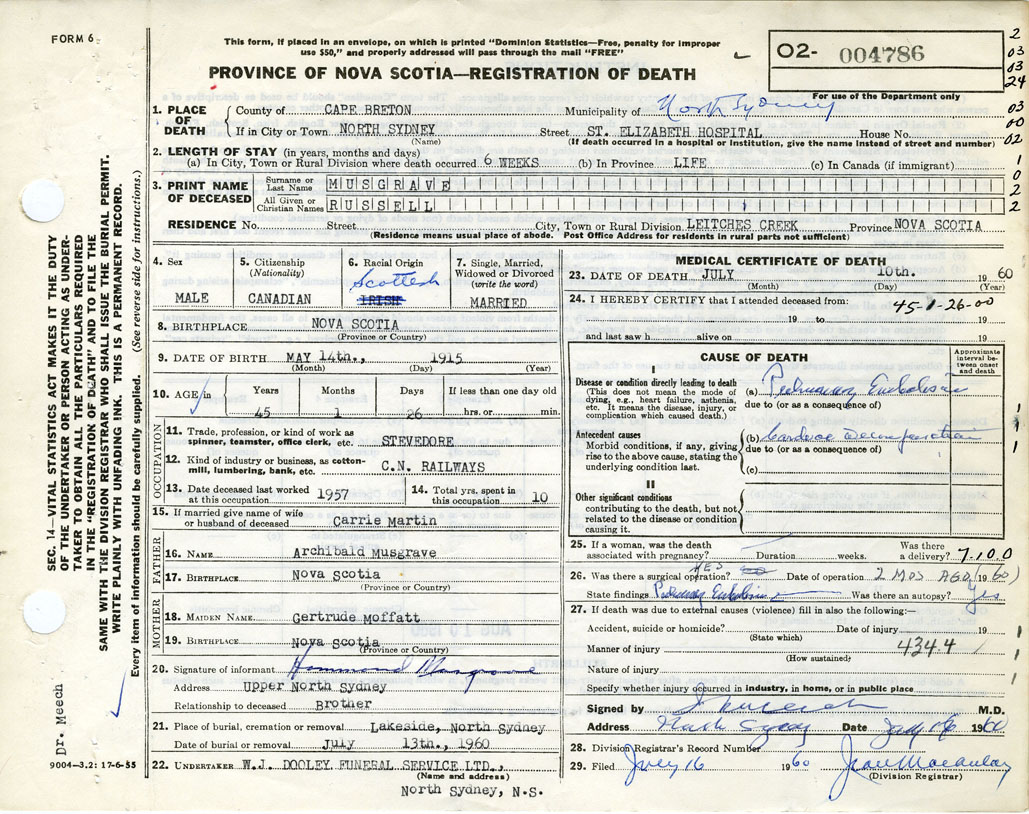 FORM 6
This form, if placed in an envelope, on which is printed "Dominion Statistics—Free, penalty for improper
use $50," and properly addressed will pass through the mail "FREE"
02- 004786
PROVINCE OF NOVA SCOTIA—REGISTRATION OF DEATH
For use of the Department only
2
03
03
24
03
00
02
1
0
2
2
1. PLACE OF DEATH
County of CAPE BRETON Municipality of North Sydney
If in City or Town NORTH SYDNEY Street ST. ELIZABETH HOSPITAL House No.
(Name) (If death occurred in a hospital or institution, give the name instead of street and number)
2. LENGTH OF STAY (in years, months and days)
(a) In City, Town or Rural Division where death occurred 6 WEEKS (b) In Province LIFE (c) In Canada (if immigrant)
3. PRINT NAME OF DECEASED
Surname or Last Name MUSGRAVE
All Given or Christian Names RUSSELL
RESIDENCE No. Street City, Town or Rural Division LEITCHES CREEK Province NOVA SCOTIA
(Residence means usual place of abode. Post Office Address for residents in rural parts not sufficient)
4. Sex
MALE
5. Citizenship
(Nationality)
CANADIAN
6. Racial Origin
Scottish
IRISH
7. Single, Married,
Widowed or Divorced
(write the word)
MARRIED
8. BIRTHPLACE NOVA SCOTIA
(Province or Country)
9. DATE OF BIRTH MAY 14th., 1915
(Month) (Day) (Year)
10. AGE
Years Months Days If less than one day old
45 1 26 hrs. or min.
OCCUPATION
11. Trade, profession or kind of work as
spinner, teamster, office clerk, etc. STEVEDORE
12. Kind of industry or business, as cotton-
mill, lumbering, bank, etc. C.N. RAILWAYS
13. Date deceased last worked
at this occupation 1957
14. Total yrs. spent in
this occupation 10
15. If married give name of wife
or husband of deceased Carrie Martin
FATHER
16. NAME Archibald Musgrave
17. BIRTHPLACE Nova Scotia
(Province or Country)
MOTHER
18. MAIDEN NAME Gertrude Moffatt
19. BIRTHPLACE Nova scotia
(Province or Country)
20. Signature of informant Hammond Musgrave
Address Upper North Sydney
Relationship to deceased Brother
21. Place of burial, cremation or removal Lakeside, North Sydney
Date of burial or removal July 13th., 1960
22. UNDERTAKER W.J. DOOLEY FUNERAL SERVICE LTD.,
(Name and address)
North Sydney, N.S.
MEDICAL CERTIFICATE OF DEATH
23. DATE OF DEATH JULY 10th. 1960
(Month) (Day) (Year)
24. I HEREBY CERTIFY that I attended deceased from:
45-1-26-00
19 to 19
and last saw h alive on 19
CAUSE OF DEATH
Approximate interval between onset and death
I
Disease or condition directly leading to death
(This does not mean the mode of
dying, e.g., heart failure, asthenia,
etc. It means the disease, injury, or
complication which caused death.)
(a) Pulmonary Embolism
due to (or as a consequence of)
Antecedent causes
Morbid conditions, if any, giving
rise to the above cause, stating the
underlying condition last.
(b) Cardiac Decompensation
due to (or as a consequence of)
(c)
II
Other significant conditions
contributing to the death, but not
related to the disease or condition
causing it.
25. If a woman, was the death
associated with pregnancy? Duration weeks. Was there
a delivery? 7-100
26. Was there a surgical operation? YES Date of operation 2 MOS AGO (1960)
State findings Pulmonary Embolism Was there an autopsy? Yes
27. If death was due to external causes (violence) fill in also the following:—
Accident, suicide or homicide? Date of injury 19
(State which)
Manner of injury 434.4
(How sustained)
Nature of injury
Specify whether injury occurred in industry, in home, or in public place
Signed by M.D.
Address North Sydney Date July 1960
28. Division Registrar's Record Number
29. Filed July 16 1960 Jean Macaulay
(Division Registrar)
SEC. 14—VITAL STATISTICS ACT MAKES IT THE DUTY
OF THE UNDERTAKER OR PERSON ACTING AS UNDER-
TAKER TO OBTAIN ALL THE PARTICULARS REQUIRED
IN THE "REGISTRATION OF DEATH" AND TO FILE THE
SAME WITH THE DIVISION REGISTRAR WHO SHALL ISSUE THE BURIAL PERMIT.
WRITE PLAINLY WITH UNFADING INK. THIS IS A PERMANENT RECORD.
Every item of information should be carefully supplied. (See reverse side for instructions.)
Dr. Meech
9004—3.2: 17-6-55